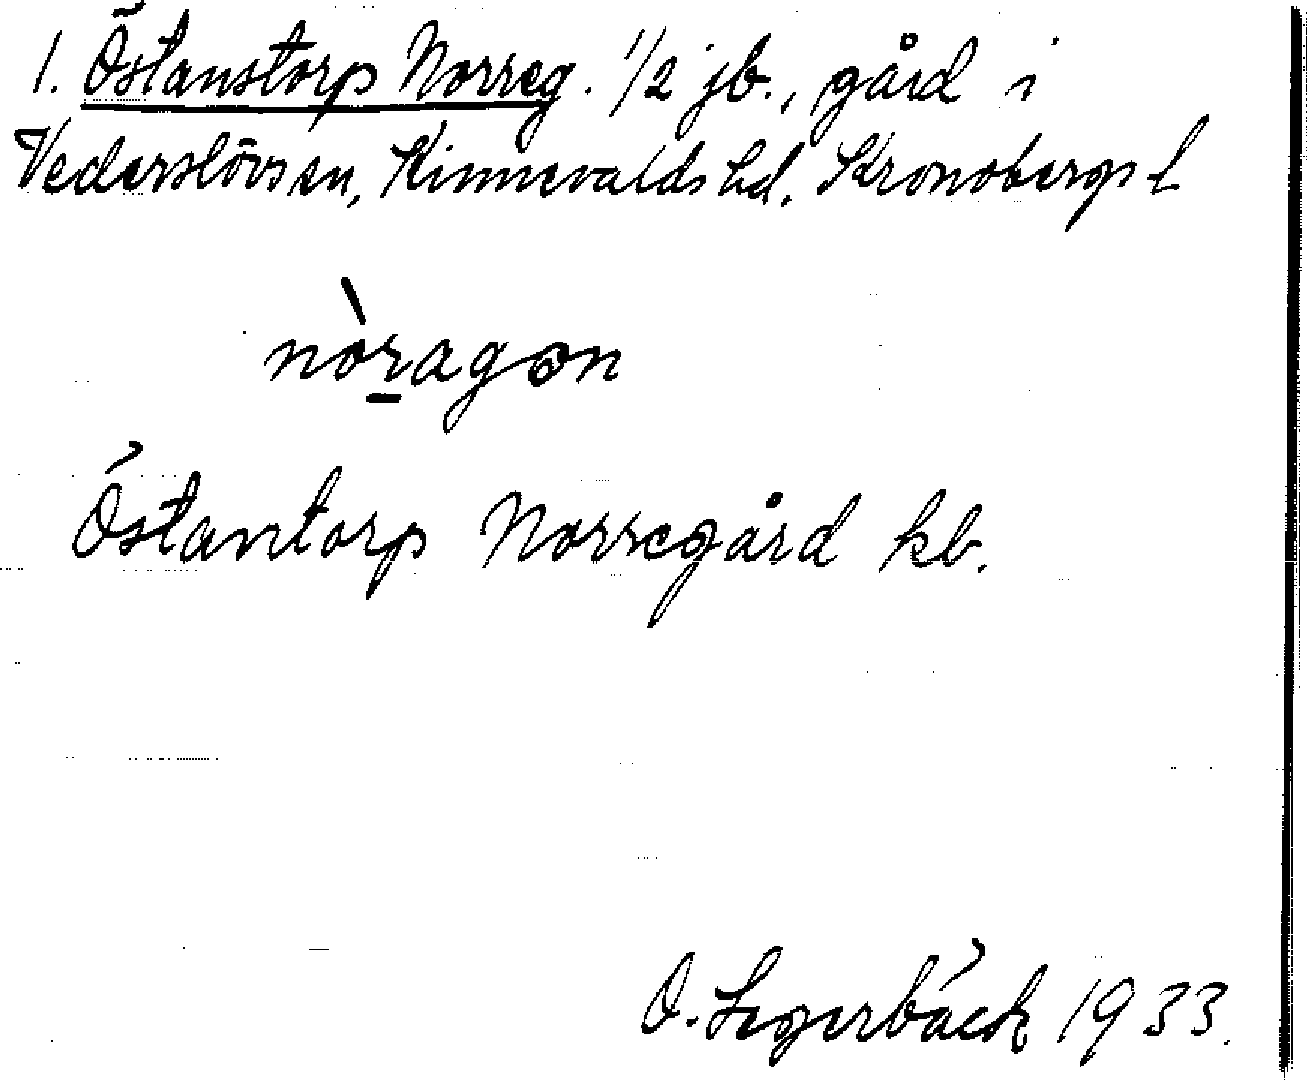 1. Östanstorp Norreg. 1/2 jb., gård i
Vederslövs sn, Kinnevalds hd. Kronobergs l
nòragon
Östantorp Norregård kb.
O. Segerbäck 1933.